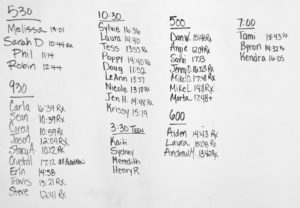 530
Melissa 13:01
Sarah D 10:44 Rx
Phil 11:14
Robin 12:44
930
Carla 16:39 Rx
Sean 10:39 Rx
Corey 10:59 Rx
Jason 12:04 Rx
Stacy A. 10:12 Rx
Crystal 17:12
Erin 14:58
Travis 13:21 Rx
Steve 12:41 Rx
10:30
Sylvia 16:36
Laura 14:40
Tess 13:55 Rx
Poppi 14:40 Rx
Doug 11:52
LeAnn 13:57
Nicole 13:18 Rx
Jen H. 14:48 Rx
Krissy 15:19
3:30 Teen
Kaiti
Sydney
Meredith
Henry R.
500
Dan W. 15:48 Rx
Angie 12:09 Rx
Sara 17:13
Jenny D. 16:23 Rx
Mike D. 17:41 Rx
Mike L. 14:11 Rx
Marta 17:48+
600
Aiden 14:43 Rx
Laura 13:28 Rx
Andrew M. 13:42 Rx
7:00
Tami 13:43 Rx
Byron 14:32 Rx
Kendra 16:05